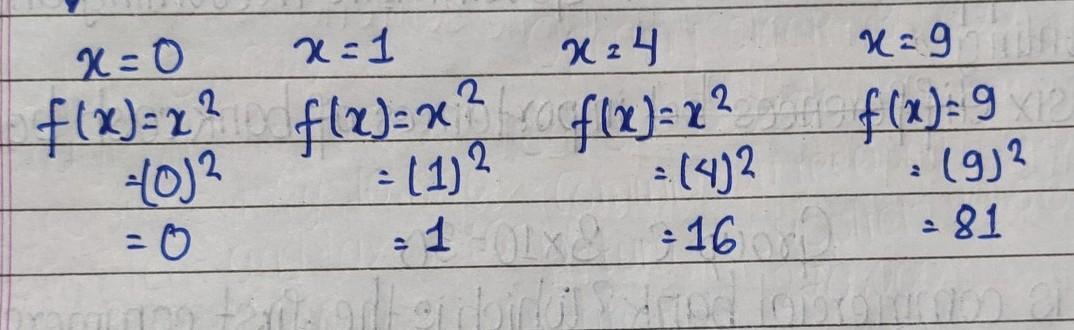 x = 0 x = 1 x = 4 x = 9
f(x) = x² f(x) = x² f(x) = x² f(x) = 9
= (0)² = (1)² = (4)² = (9)²
= 0 = 1 = 16 = 81